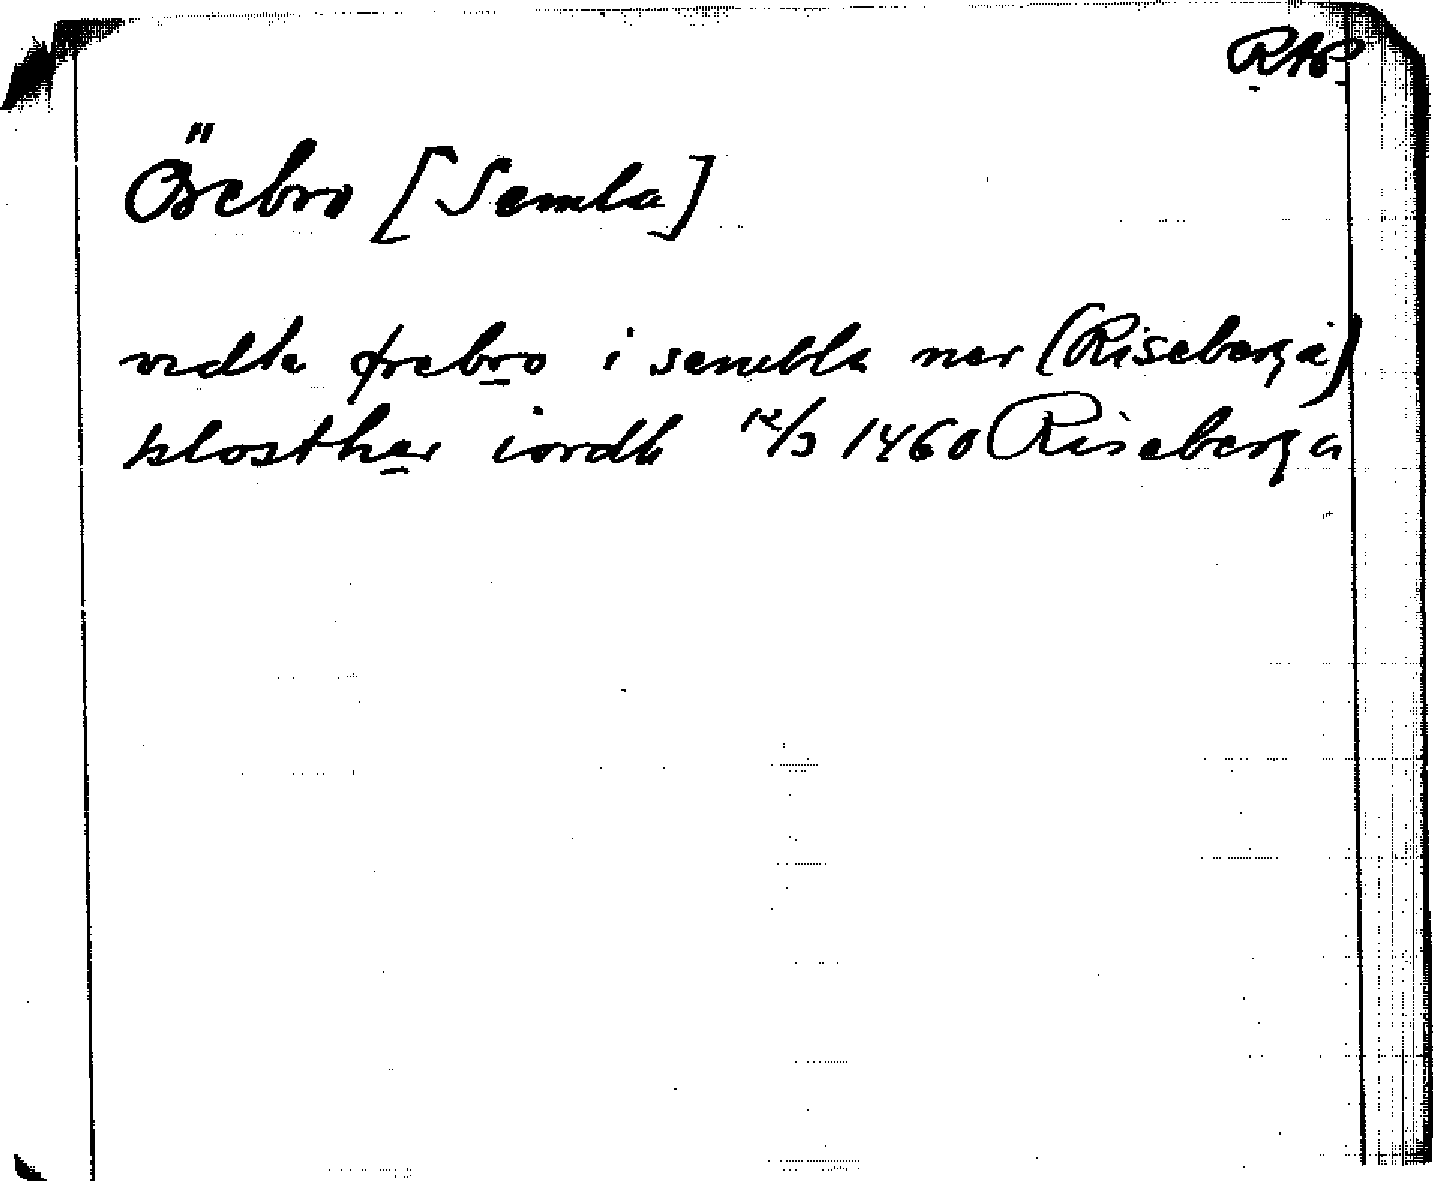 RAP
Örebro [Semla]
vidh ørebro i sembla ner (Riseberga)
klosther iordh 12/3 1460 Riseberga